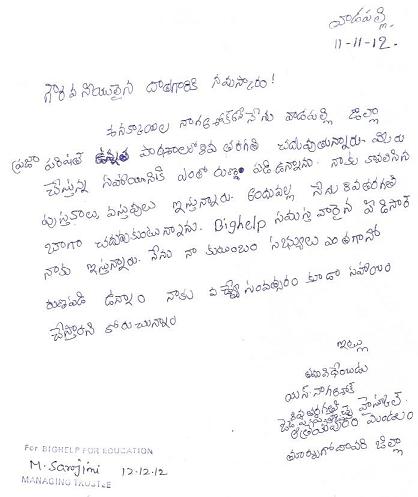 వాడపల్లి
11-11-12.
గౌరవనీయులైన దాతగారికి నమస్కారం!
నేను వాడపల్లి జిల్లా
ప్రజా పరిషత్ ఉన్నత పాఠశాలలో 8వ తరగతి చదువుతున్నాను. మీరు
చేస్తున్న సహాయానికి ఎంతో రుణ పడి ఉన్నాను. నాకు కావలసిన
పుస్తకాలు, వస్తువులు ఇస్తున్నారు. అందువల్ల నేను 8వ తరగతి
బాగా చదువుకుంటున్నాను. Bighelp సమస్త వారైన
నాకు ఇస్తున్నారు. నేను నా కుటుంబం సభ్యులు ఎంతగానో
రుణపడి ఉన్నాం నాకు వచ్చే సంవత్సరం కూడా సహాయం
చేస్తారని కోరుచున్నాను
ఇట్లు
తమ విధేయుడు
యన్. నాగ
8వ తరగతి
ఆత్రేయపురం మండలం
తూర్పుగోదావరి జిల్లా
For BIGHELP FOR EDUCATION
M. Sarojini 12-12-12
MANAGING TRUSTEE